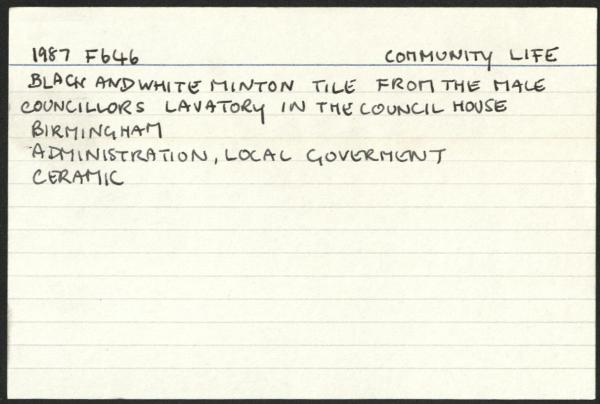 1987 F646 COMMUNITY LIFE
BLACK AND WHITE MINTON TILE FROM THE MALE
COUNCILLORS LAVATORY IN THE COUNCIL HOUSE
BIRMINGHAM
ADMINISTRATION, LOCAL GOVERMENT
CERAMIC